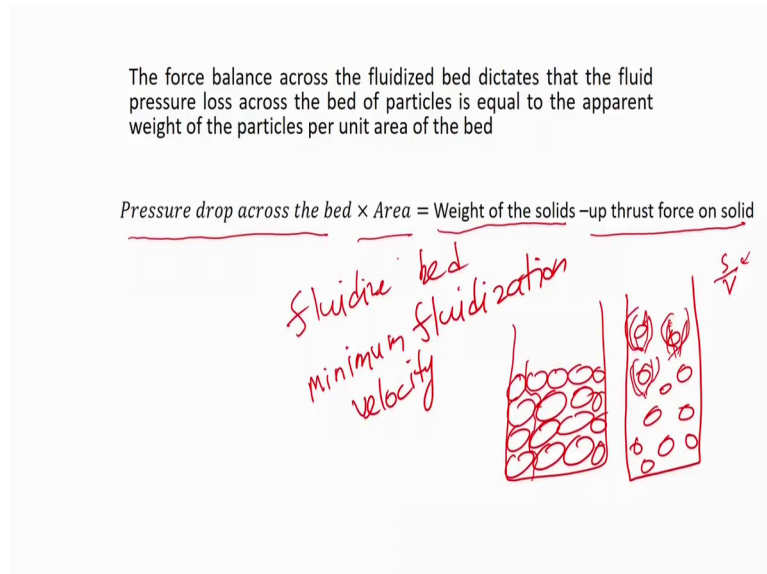 The force balance across the fluidized bed dictates that the fluid
pressure loss across the bed of particles is equal to the apparent
weight of the particles per unit area of the bed
Pressure drop across the bed × Area = Weight of the solids –up thrust force on solid
fluidize bed
minimum fluidization
velocity
S/V